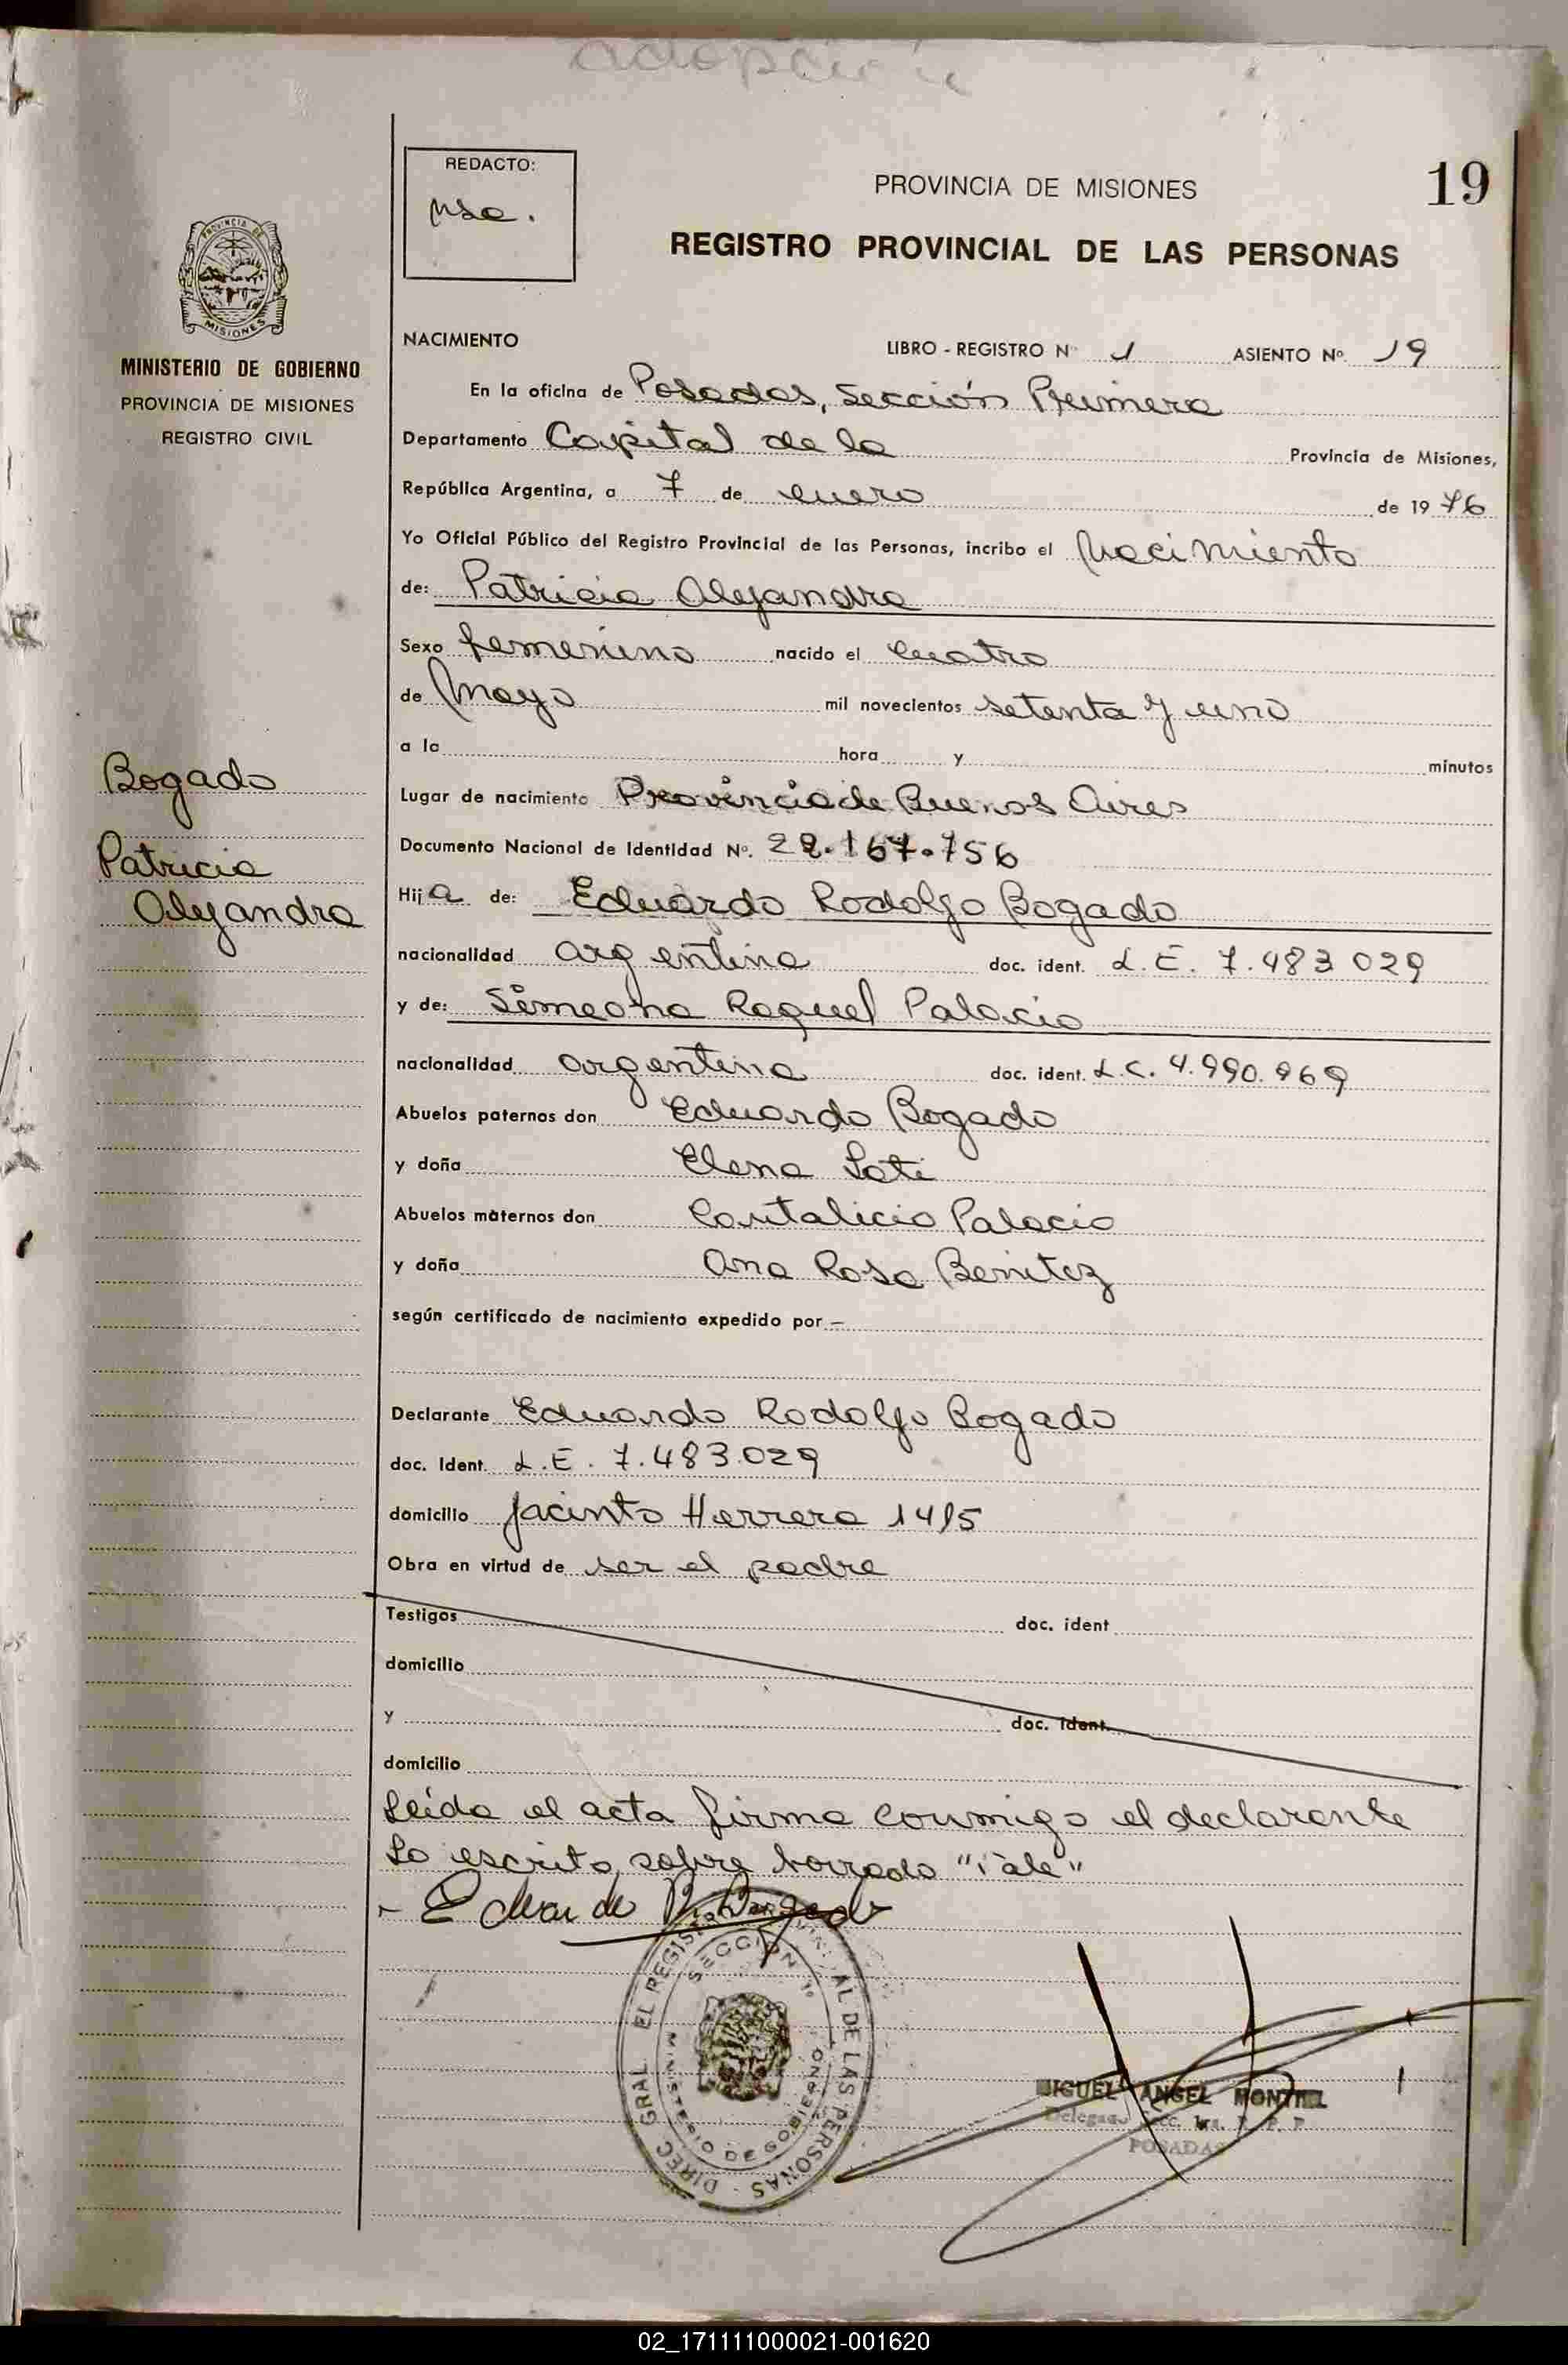 adopción
REDACTO:
PROVINCIA DE MISIONES
19
REGISTRO PROVINCIAL DE LAS PERSONAS
PROVINCIA DE
MISIONES
MINISTERIO DE GOBIERNO
PROVINCIA DE MISIONES
REGISTRO CIVIL
NACIMIENTO
LIBRO - REGISTRO Nº 1 ASIENTO Nº. 19
En la oficina de Posadas, Sección Primera
Departamento Capital de la Provincia de Misiones,
República Argentina, a 7 de enero de 1976
Yo Oficial Público del Registro Provincial de las Personas, incribo el Nacimiento
de: Patricia Alejandra
Sexo femenino nacido el cuatro
de Mayo mil novecientos setenta y uno
a la hora y minutos
Bogado
Patricia
Alejandra
Lugar de nacimiento Provincia de Buenos Aires
Documento Nacional de Identidad Nº. 22.167.756
Hija de: Eduardo Rodolfo Bogado
nacionalidad argentina doc. ident. L.E. 7.483 029
y de: Simeona Raquel Palacio
nacionalidad argentina doc. ident. L.C. 4.990.969
Abuelos paternos don Eduardo Bogado
y doña Elena Soti
Abuelos maternos don Cantalicio Palacio
y doña Ana Rosa Benitez
según certificado de nacimiento expedido por –
Declarante Eduardo Rodolfo Bogado
doc. Ident. L.E. 7.483.029
domicilio Jacinto Herrera 1415
Obra en virtud de ser el padre
Testigos doc. ident
domicilio
y doc. ident.
domicilio
Leída el acta firma conmigo el declarante
Lo escrito sobre borrado "Vale"
- Eduardo R. Bogado
DIREC GRAL EL REGISTRO PROVINCIAL DE LAS PERSONAS
SECCION 1º
MINISTERIO DE GOBIERNO
MIGUEL ANGEL
Delegado Secc. 1ra. R. P. P.
POSADAS
02_171111000021-001620